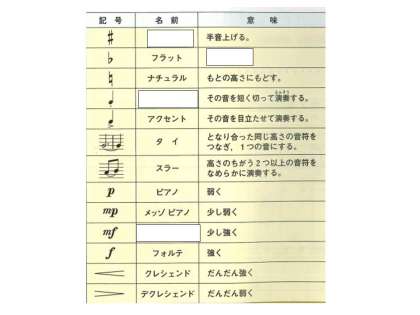 記号 名前 意味
♯ 半音上げる。
♭ フラット
♮ ナチュラル もとの高さにもどす。
その音を短く切って演奏する。
アクセント その音を目立たせて演奏する。
タイ となり合った同じ高さの音符を
つなぎ，1つの音にする。
スラー 高さのちがう2つ以上の音符を
なめらかに演奏する。
p ピアノ 弱く
mp メッゾ ピアノ 少し弱く
mf 少し強く
f フォルテ 強く
クレシェンド だんだん強く
デクレシェンド だんだん弱く